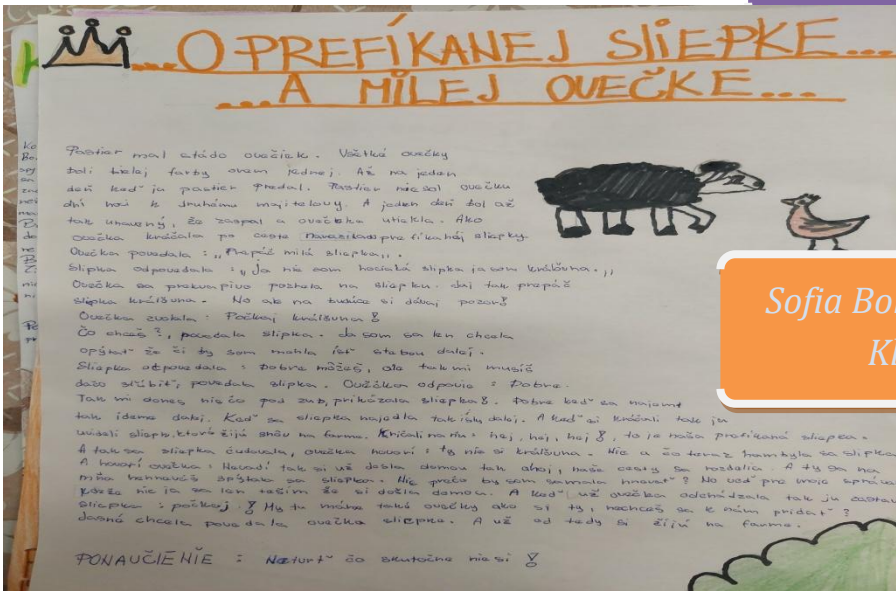 ...O PREFÍKANEJ SLIEPKE...
...A MILEJ OVEČKE...
Pastier mal stádo ovečiek. Všetké ovečky
boli bielej farby okrem jednej. Až na jeden
deň keď ju pastier predal. Pastier niesol ovečku
dni noci k druhému majiteľovy. A jeden deň bol až
tak unavený, že zaspal a ovečka utiekla. Ako
ovečka kráčala po ceste prefíkanej sliepky.
Ovečka povedala : ,,Prepáč milá sliepka,,.
Slipka odpovedala : ,,Ja nie som hociaká slipka ja som kráľovna.,,
Ovečka sa prekvapivo pozrela na sliepku. Jaj tak prepáč
sliepka kráľovna. No ak na budúce si dávaj pozor!
Ovečka zvolala : Počkaj kráľovna!
Čo chceš?, povedala slipka. Ja som sa len chcela
opýtať že či by som mohla ísť stebou ďalej.
Sliepka odpovedala : Dobre môžeš, ale tak mi musíš
dačo sľúbiť, povedala slipka. Ovečka odpovie : Dobre.
Tak mi dones niečo pod zub, prikázala sliepka!. Dobre keď sa najem
tak ideme ďalej. Keď sa sliepka najedla tak išly ďalej. A keď si kráčali tak ju
uvideli sliepk, ktoré žijú na farme. Kričali na ňu : hej, hej, hej!, to je naša prefíkaná sliepka.
A tak sa sliepka čudovala, ovečka hovorí : ty nie si kráľovna. Nie a čo teraz hambyla sa slipka
A hovorí ovečka : Nevadí tak si už došla domou tak ahoj, naše cesty sa rozdelia. A ty sa na
mňa nehneváš spýtala sa sliepka. Nie prečo by som sa mala hnevať? No veď pre moje správa
nie ja sa len teším že si došla domou. A keď už ovečka odchádzala tak ju zastav
sliepka : počkaj! My tu máme také ovečky ako si ty, nechceš sa k nám pridať?
Jasné chcela povedala ovečka sliepke. A už od tedy si žijú na farme.
PONAUČIENIE : čo skutočne nie si!
Sofia Bo
Kl